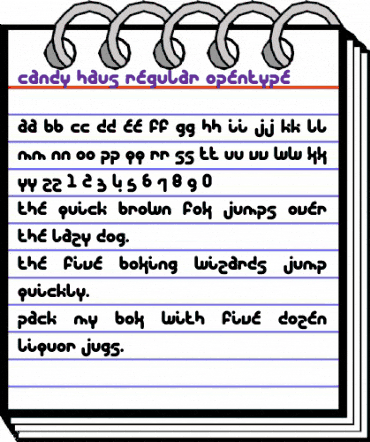 candy haus regular opentype
aa bb cc dd ee ff gg hh ii jj kk ll
mm nn oo pp qq rr ss tt uu vv ww xx
yy zz 1 2 3 4 5 6 7 8 9 0
the quick brown fox jumps over
the lazy dog.
the five boxing wizards jump
quickly.
pack my box with five dozen
liquor jugs.